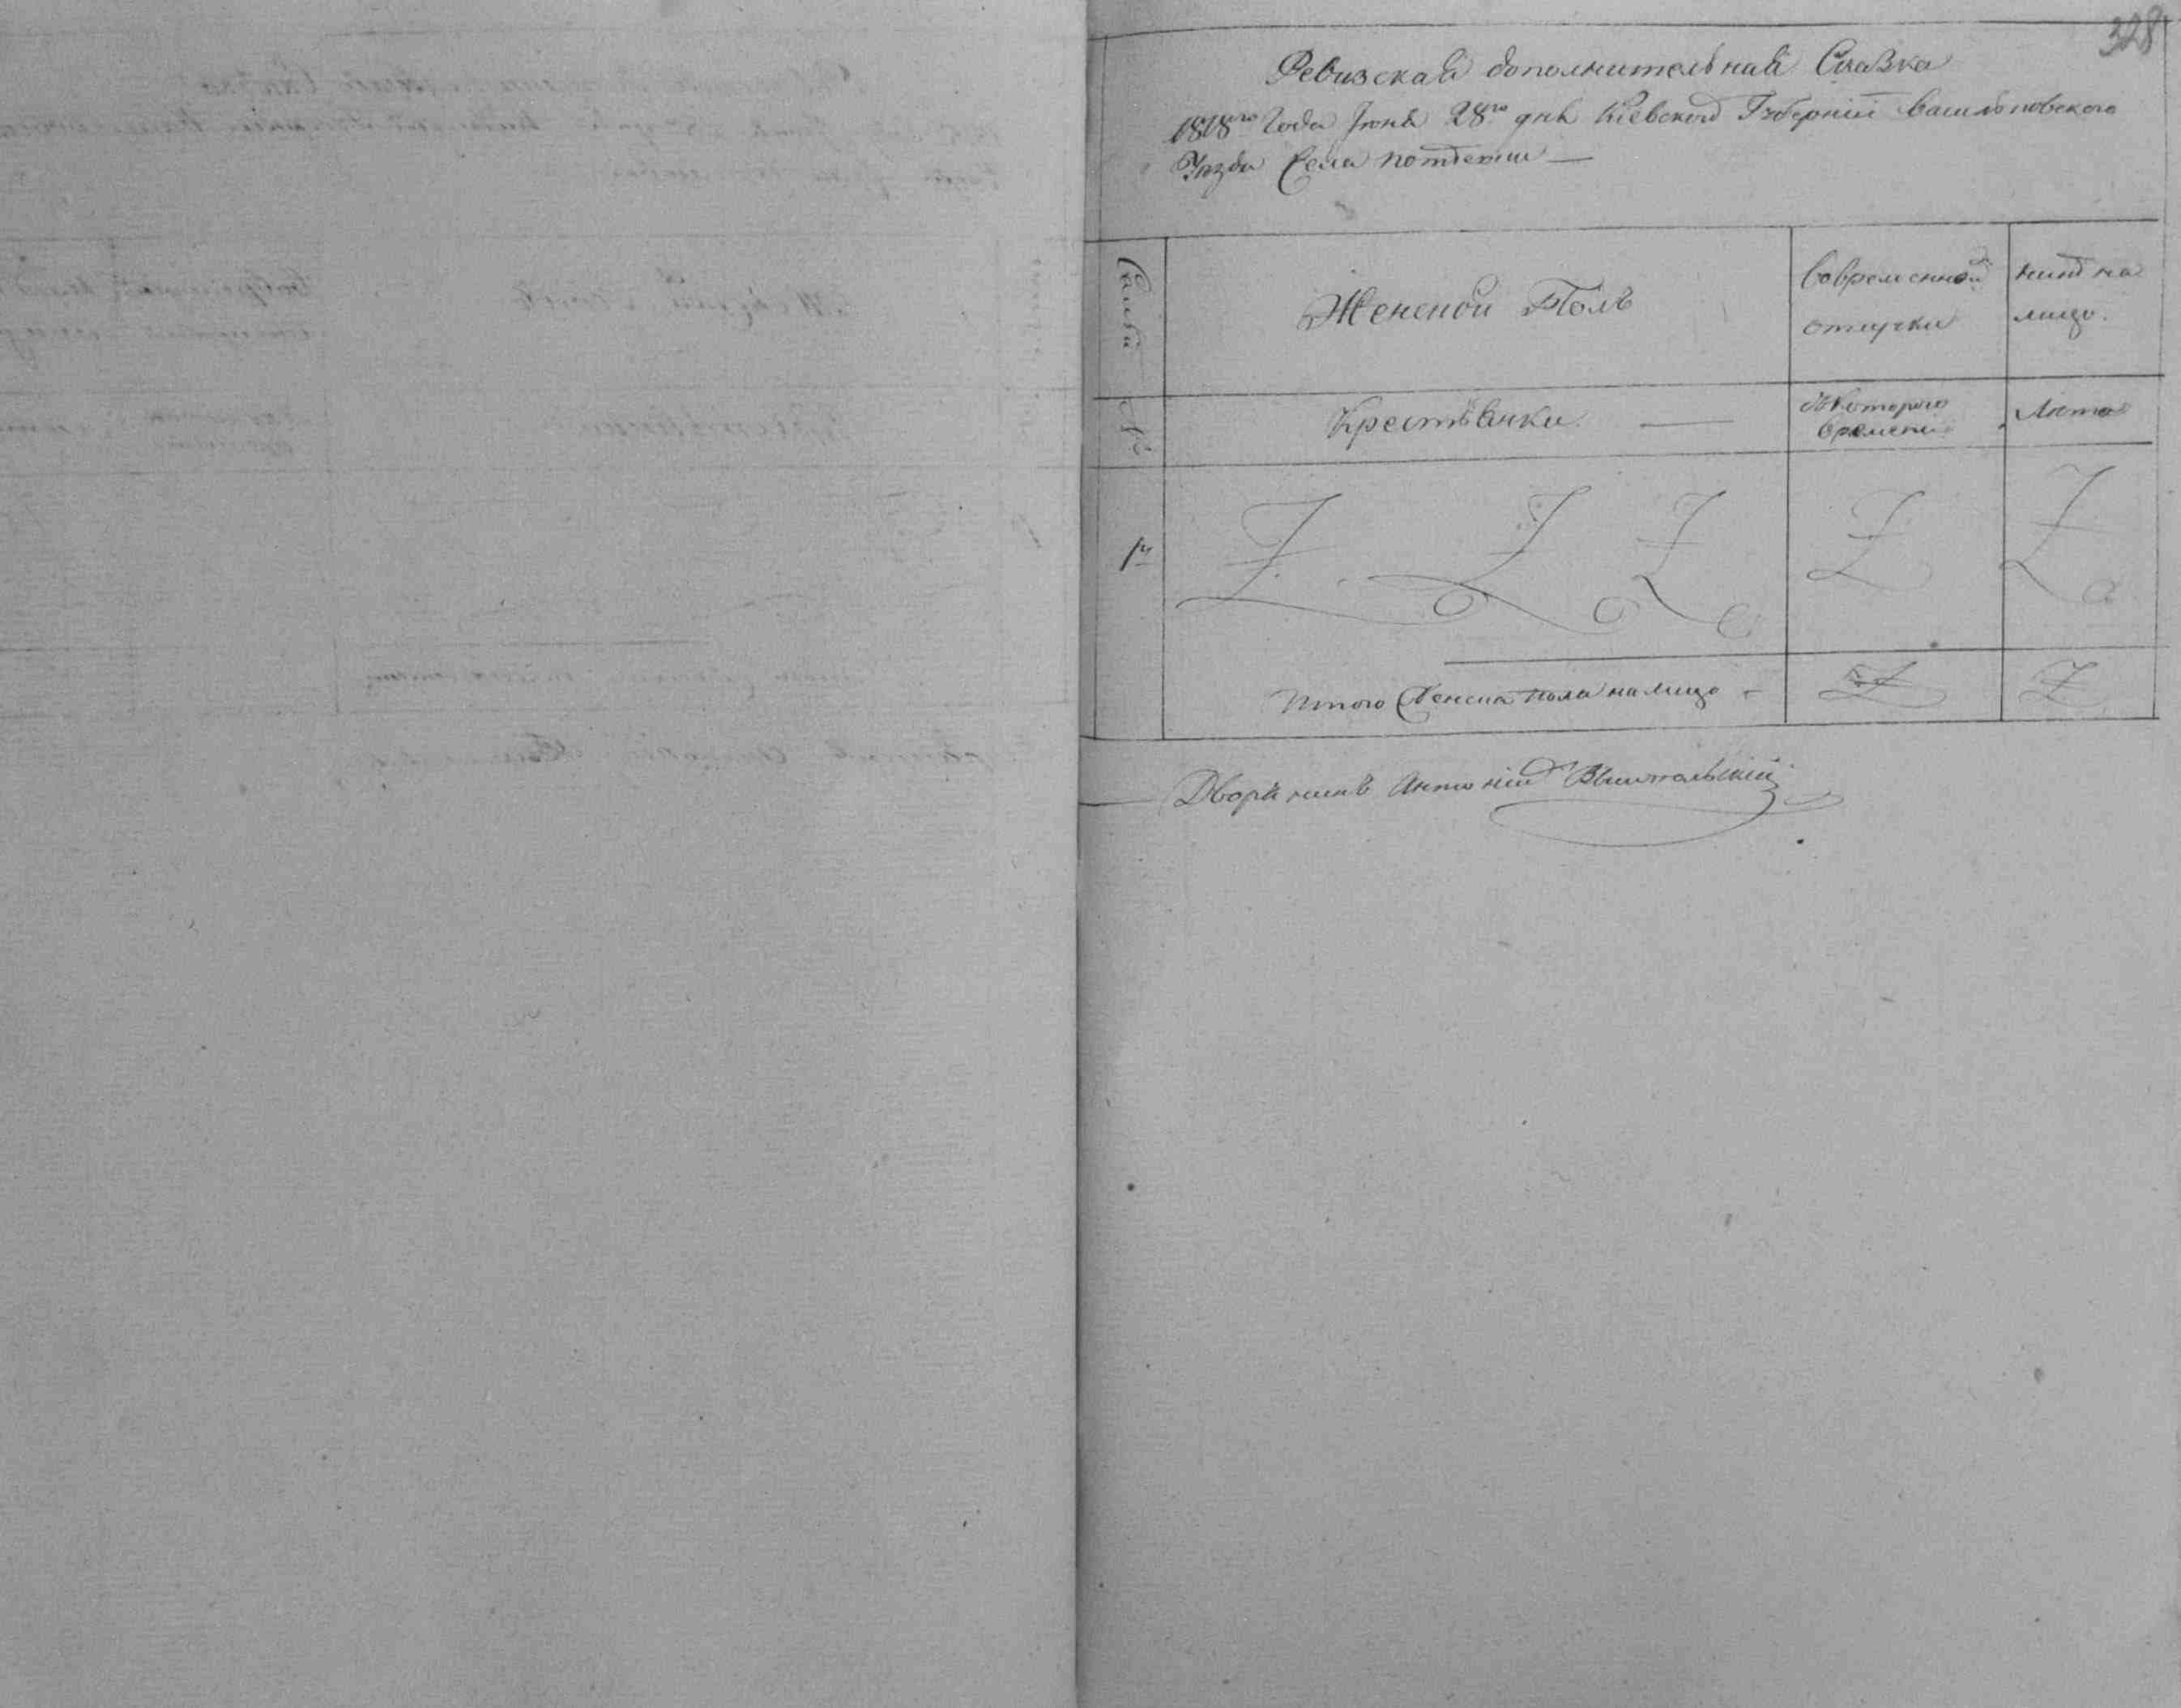 328
Ревизская дополнительная Сказка
1818го Года Июня 28го дня Киевской Губернии Васильковского
Уезда Села
Семьи
Женской Полъ
Во временной отлучки
ныне на лицо.
№
Крестьянки —
Съ которого времени
Лета
1й
Итого Женска пола на лицо -
Дворянинъ Антоній